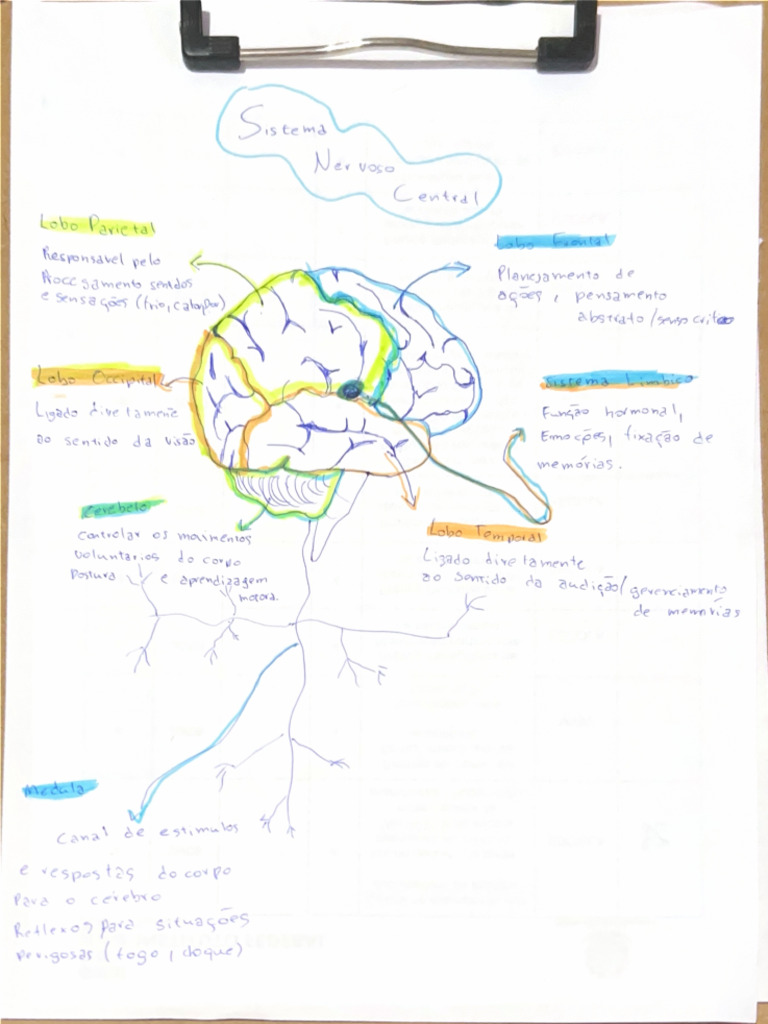 Sistema
Nervoso
Central
Lobo Parietal
Responsavel pelo
Processamento sentidos
e sensações (frio, calor, dor)
Lobo Frontal
Planejamento de
ações, pensamento
abstrato/senso critco
Lobo Occipital
Ligado diretamente
ao sentido da visão
Sistema Limbico
Função hormonal,
Emoções, fixação de
memórias.
Cerebelo
controlar os movimentos
voluntarios do corpo
Postura e aprendizagem
motora
Lobo Temporal
Ligado diretamente
ao sentido da audição/gerenciamento
de memórias
Medula
Canal de estimulos
e respostas do corpo
Para o cérebro
Reflexos para situações
perigosas (fogo, choque)